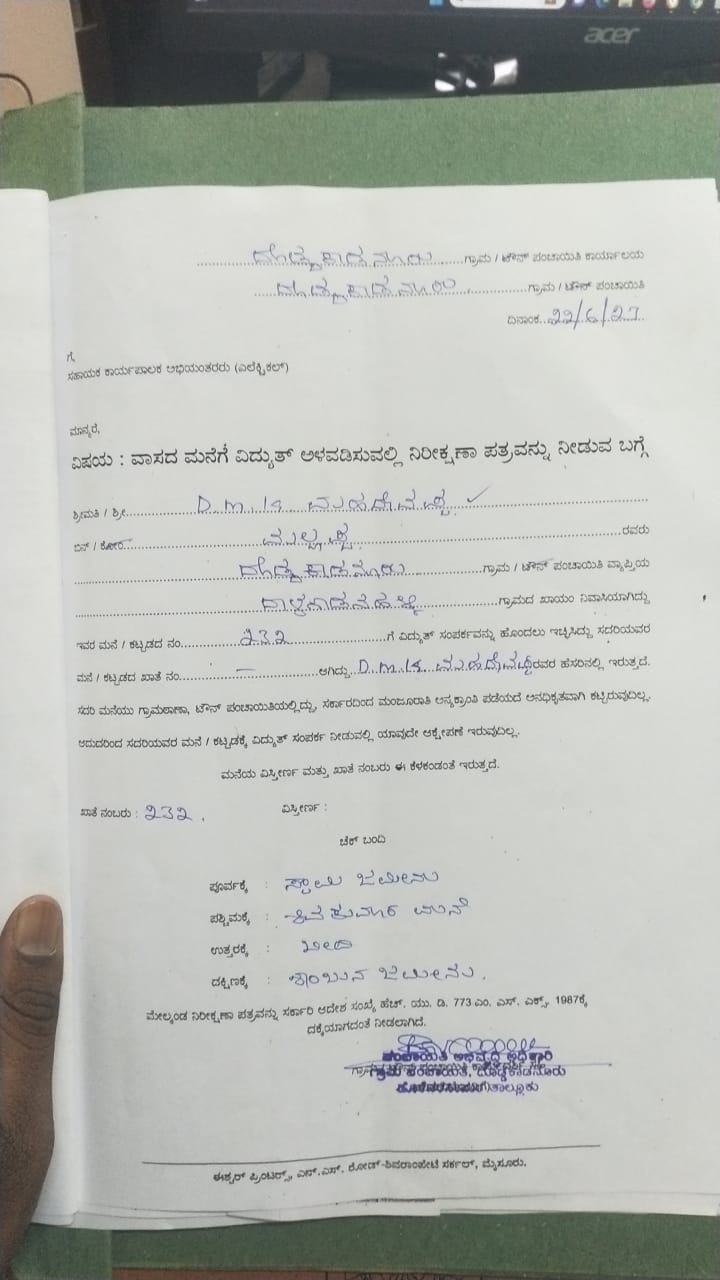 acer
ದೊಡ್ಡಕಾಡನೂರು ಗ್ರಾಮ / ಟೌನ್ ಪಂಚಾಯಿತಿ ಕಾರ್ಯಾಲಯ
ದೊಡ್ಡಕಾಡನೂರು ಗ್ರಾಮ / ಟೌನ್ ಪಂಚಾಯಿತಿ
ದಿನಾಂಕ..22/6/23
ಗೆ,
ಸಹಾಯಕ ಕಾರ್ಯಪಾಲಕ ಅಭಿಯಂತರರು (ಎಲೆಕ್ಟ್ರಿಕಲ್)
ಮಾನ್ಯರೆ,
ವಿಷಯ : ವಾಸದ ಮನೆಗೆ ವಿದ್ಯುತ್ ಅಳವಡಿಸುವಲ್ಲಿ ನಿರೀಕ್ಷಣಾ ಪತ್ರವನ್ನು ನೀಡುವ ಬಗ್ಗೆ
ಶ್ರೀಮತಿ / ಶ್ರೀ D.M. ಮಹದೇವಪ್ಪ
ಬಿನ್ / ಕೋಂ ಮಲ್ಲಪ್ಪ ರವರು
ದೊಡ್ಡಕಾಡನೂರು ಗ್ರಾಮ / ಟೌನ್ ಪಂಚಾಯಿತಿ ವ್ಯಾಪ್ತಿಯ
ಗ್ರಾಮದ ಖಾಯಂ ನಿವಾಸಿಯಾಗಿದ್ದು
ಇವರ ಮನೆ / ಕಟ್ಟಡದ ನಂ. 232 ಗೆ ವಿದ್ಯುತ್ ಸಂಪರ್ಕವನ್ನು ಹೊಂದಲು ಇಚ್ಛಿಸಿದ್ದು ಸದರಿಯವರ
ಮನೆ / ಕಟ್ಟಡದ ಖಾತೆ ನಂ. — ಆಗಿದ್ದು D.M. ಮಹದೇವಪ್ಪ ರವರ ಹೆಸರಿನಲ್ಲಿ ಇರುತ್ತದೆ.
ಸದರಿ ಮನೆಯು ಗ್ರಾಮಠಾಣಾ, ಟೌನ್ ಪಂಚಾಯಿತಿಯಲ್ಲಿದ್ದು, ಸರ್ಕಾರದಿಂದ ಮಂಜೂರಾತಿ ಅನ್ಯಕ್ರಾಂತಿ ಪಡೆಯದೆ ಅನಧಿಕೃತವಾಗಿ ಕಟ್ಟಿರುವುದಿಲ್ಲ.
ಆದುದರಿಂದ ಸದರಿಯವರ ಮನೆ / ಕಟ್ಟಡಕ್ಕೆ ವಿದ್ಯುತ್ ಸಂಪರ್ಕ ನೀಡುವಲ್ಲಿ ಯಾವುದೇ ಆಕ್ಷೇಪಣೆ ಇರುವುದಿಲ್ಲ.
ಮನೆಯ ವಿಸ್ತೀರ್ಣ ಮತ್ತು ಖಾತೆ ನಂಬರು ಈ ಕೆಳಕಂಡಂತೆ ಇರುತ್ತದೆ.
ಖಾತೆ ನಂಬರು : 232. ವಿಸ್ತೀರ್ಣ :
ಚೆಕ್ ಬಂದಿ
ಪೂರ್ವಕ್ಕೆ : ಸ್ವಾಮಿ ಜಮೀನು
ಪಶ್ಚಿಮಕ್ಕೆ : ಶಿವಕುಮಾರ ಮನೆ
ಉತ್ತರಕ್ಕೆ : ಬೀದಿ
ದಕ್ಷಿಣಕ್ಕೆ : ಜಮೀನು.
ಮೇಲ್ಕಂಡ ನಿರೀಕ್ಷಣಾ ಪತ್ರವನ್ನು ಸರ್ಕಾರಿ ಆದೇಶ ಸಂಖ್ಯೆ ಹೆಚ್. ಯು. ಡಿ. 773 ಎಂ. ಎಸ್. ಎಕ್ಸ್. 1987ಕ್ಕೆ
ದಕ್ಕೆಯಾಗದಂತೆ ನೀಡಲಾಗಿದೆ.
ಪಂಚಾಯಿತಿ ಅಭಿವೃದ್ಧಿ ಅಧಿಕಾರಿ
ಗ್ರಾಮ ಪಂಚಾಯಿತಿ, ದೊಡ್ಡಕಾಡನೂರು
ತಾಲ್ಲೂಕು
ಈಶ್ವರ್ ಪ್ರಿಂಟರ್ಸ್, ಎನ್.ಎಸ್. ರೋಡ್-ಶಿವರಾಂಪೇಟೆ ಸರ್ಕಲ್, ಮೈಸೂರು.